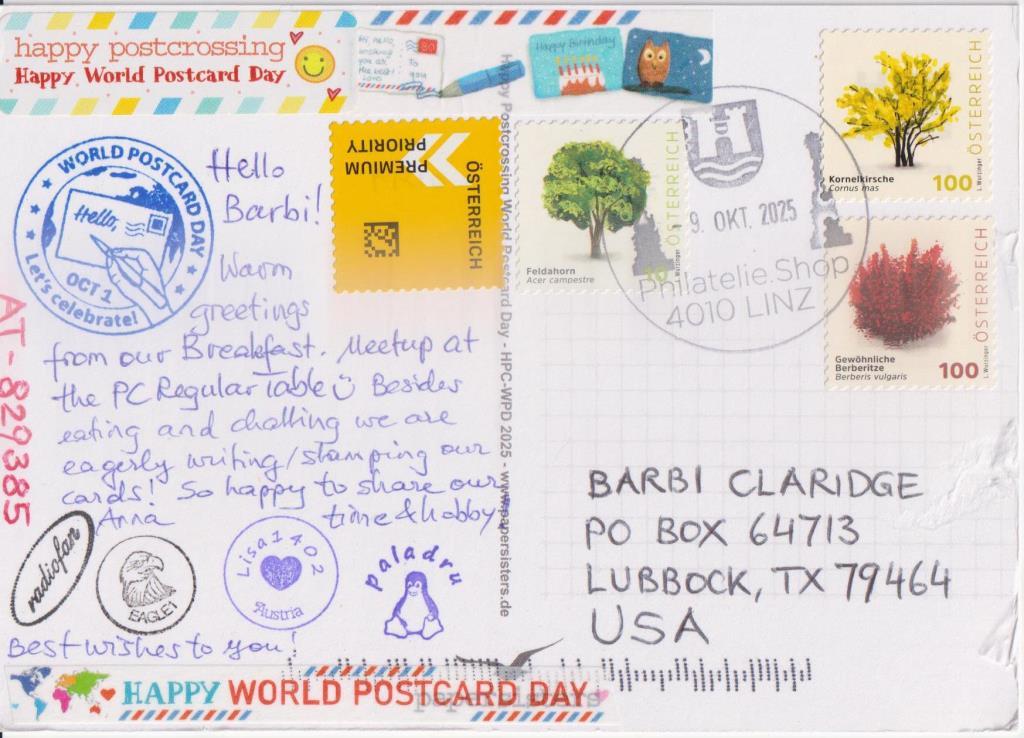 happy postcrossing
Happy World Postcard Day
Hi, Hello
wishing
you all
the best!
Love
80
To
you
Happy Birthday
WORLD POSTCARD DAY
Hello,
OCT 1
Let's celebrate!
Hello
Barbi!
Warm
greetings
from our Breakfast. Meetup at
the PC Regular Table☺ Besides
eating and chatting we are
eagerly writing/stamping our
cards! So happy to share our
Anna time & hobby
AT-829385
radiofan
EAGLE1
Lisa1402
Austria
paladru
Best wishes to you!
HAPPY WORLD POSTCARD DAY
papersisters
PREMIUM
PRIORITY
ÖSTERREICH
Happy Postcrossing World Postcard Day - HPC-WPD 2025 - www.papersisters.de
Feldahorn
Acer campestre
10
ÖSTERREICH
L. Warzinger
9. OKT. 2025
Philatelie.Shop
4010 LINZ
Kornelkirsche
Cornus mas
100
ÖSTERREICH
L. Warzinger
Gewöhnliche
Berberitze
Berberis vulgaris
100
ÖSTERREICH
L. Warzinger
BARBI CLARIDGE
PO BOX 64713
LUBBOCK, TX 79464
USA